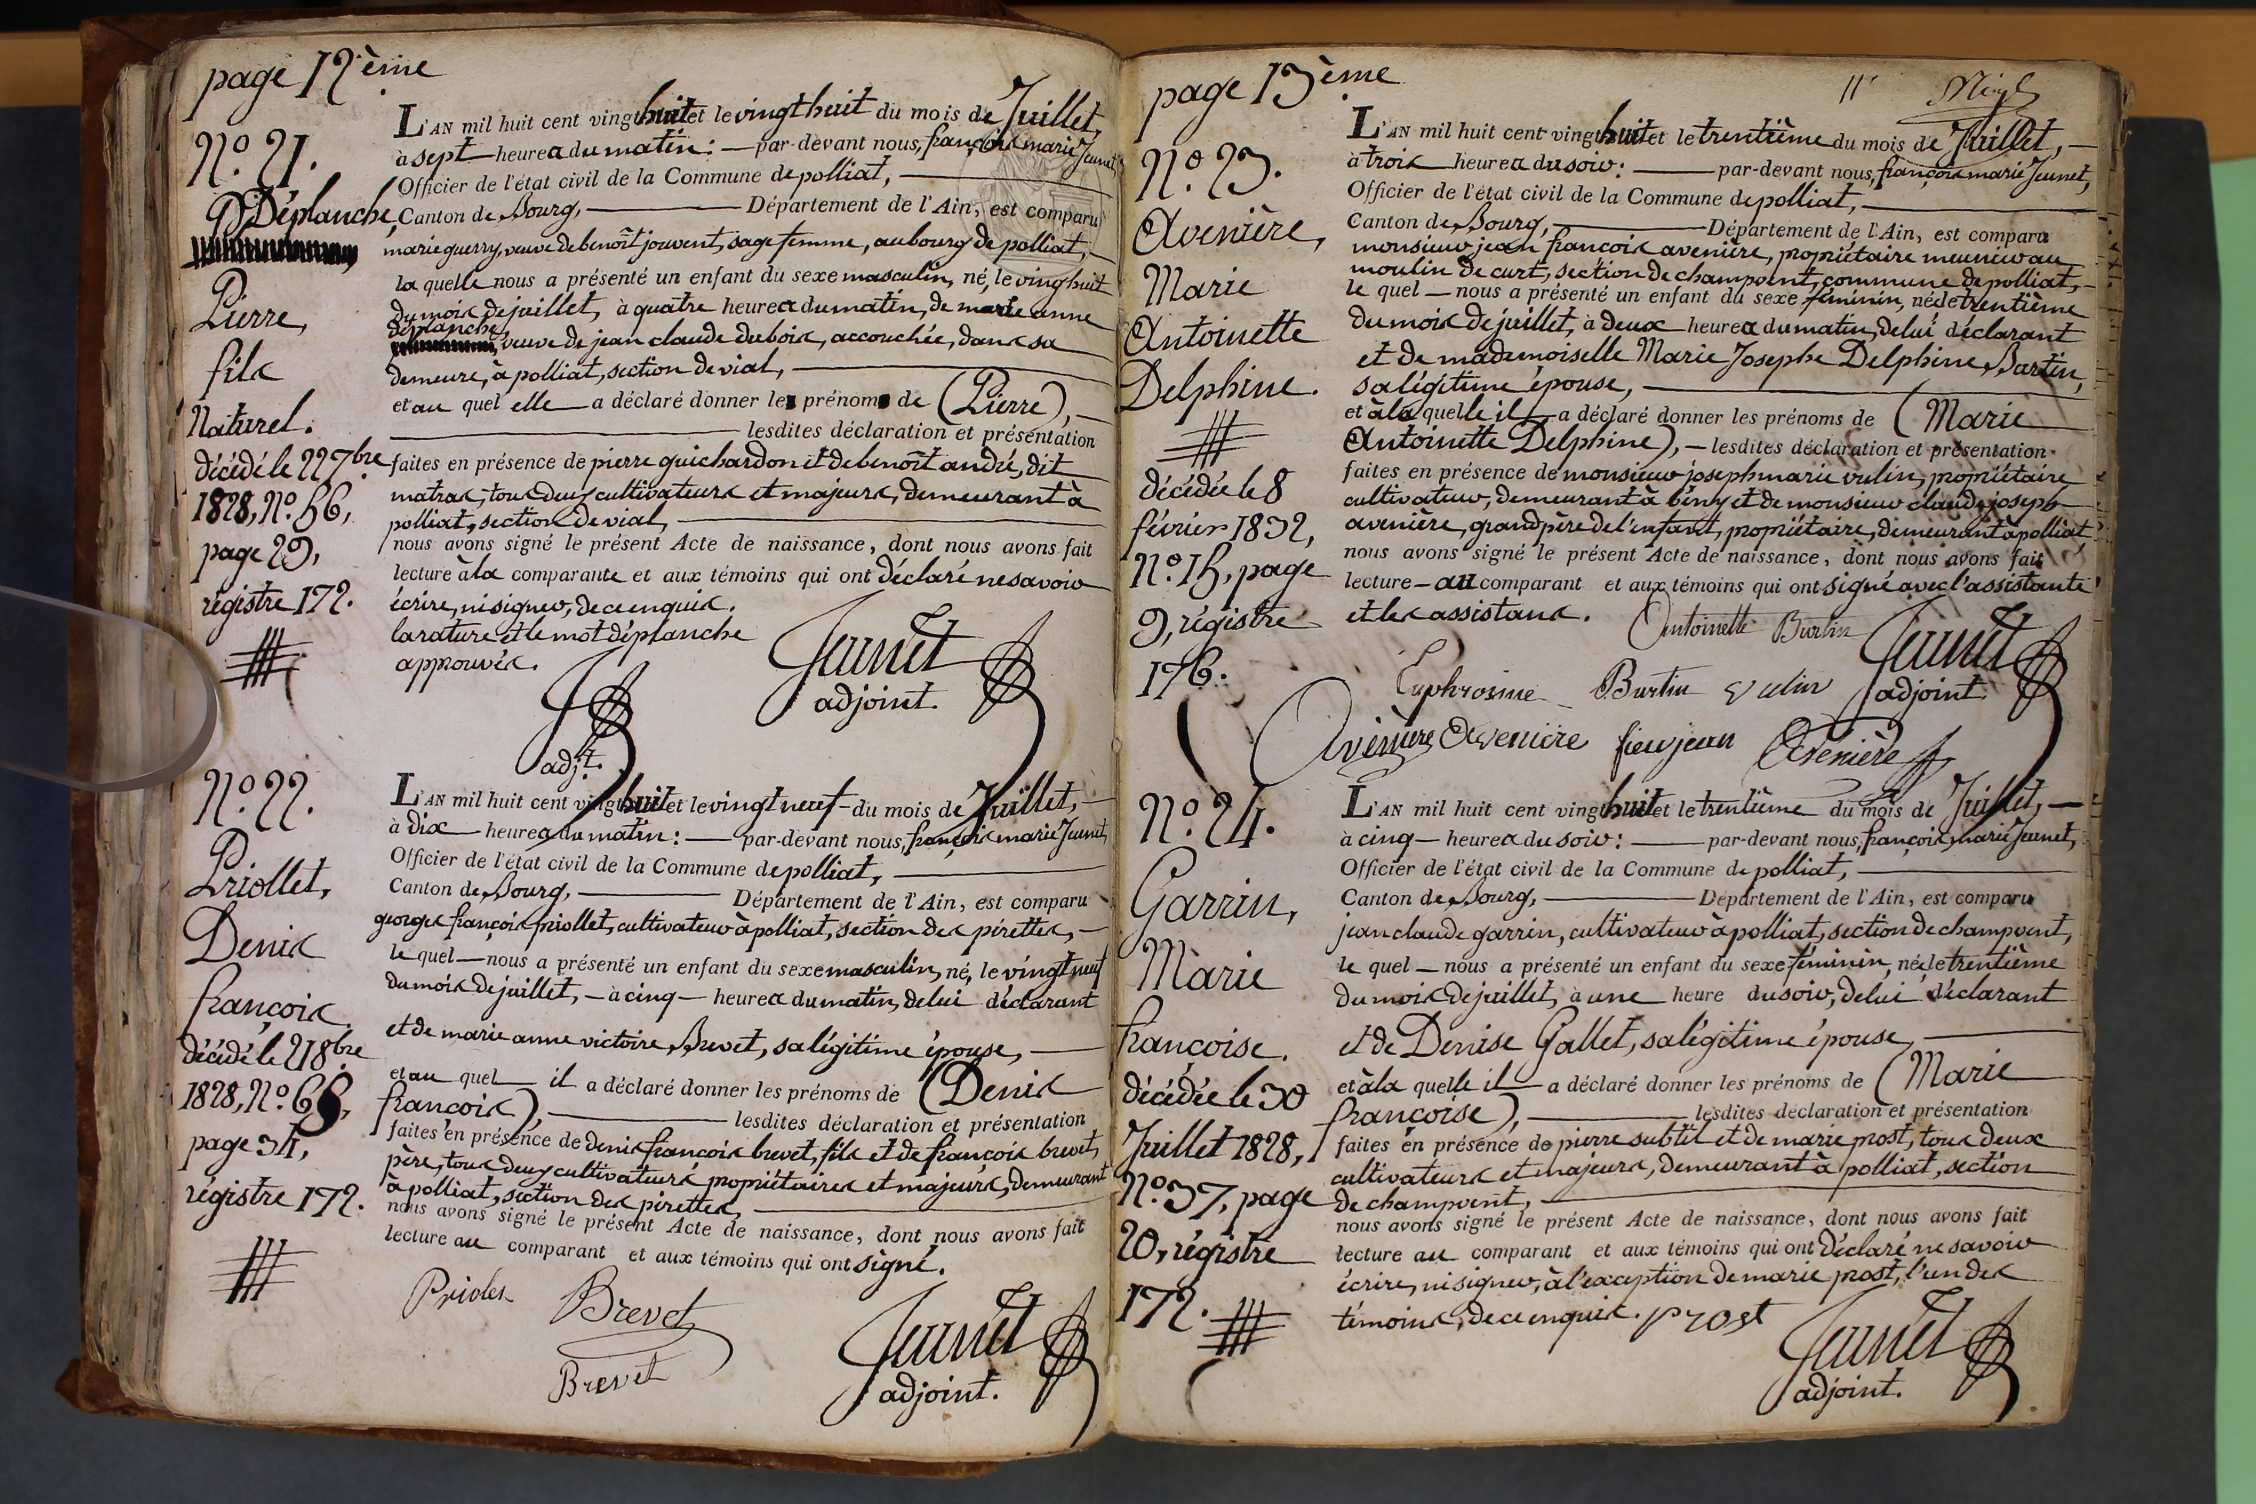 page 12ème
N.º 21.
Déplanche,
Pierre,
fils
Naturel.
décédé le 22 7bre
1828, N.º 56,
page 29,
régistre 172.
L'AN mil huit cent vingt huit et le vingt huit du mois de Juillet,
à sept heures du matin: par-devant nous, françois marie Jeunet
Officier de l'état civil de la Commune de polliat,
Canton de Bourg, Département de l'Ain, est comparu
marie guerry, veuve de benoît jouvent, sage femme, au bourg de polliat,
la quelle nous a présenté un enfant du sexe masculin, né, le vingt huit
du mois de juillet, à quatre heures du matin, de marie anne
déplanche,
veuve de jean claude dubois, accouchée, dans sa
demeure, à polliat, section de vial,
et au quel elle a déclaré donner le prénom de (Pierre),
lesdites déclaration et présentation
faites en présence de pierre guichardon et de benoît andré, dit
matras, tous deux cultivateurs et majeurs, demeurant à
polliat, section de vial,
nous avons signé le présent Acte de naissance, dont nous avons fait
lecture à la comparante et aux témoins qui ont déclaré ne savoir
écrire, ni signer, de ce enquis.
la rature et le mot déplanche
approuvés.
Jeunet
adjoint.
adj.t
N.º 22.
Priollet,
Denis
françois.
décédé le 2 8bre
1828, N.º 68,
page 34,
régistre 172.
L'AN mil huit cent vingt huit et le vingt neuf du mois de Juillet,
à dix heures du matin: par-devant nous, françois marie Jeunet,
Officier de l'état civil de la Commune de polliat,
Canton de Bourg, Département de l'Ain, est comparu
georges françois priollet, cultivateur à polliat, section des pirettes,
le quel nous a présenté un enfant du sexe masculin, né, le vingt neuf
du mois de juillet, à cinq heures du matin, de lui déclarant
et de marie anne victoire Brevet, sa légitime épouse,
et au quel il a déclaré donner les prénoms de (Denis
françois), lesdites déclaration et présentation
faites en présence de denis françois brevet, fils et de françois brevet,
père, tous deux cultivateurs propriétaires et majeurs, demeurant
à polliat, section des pirettes,
nous avons signé le présent Acte de naissance, dont nous avons fait
lecture au comparant et aux témoins qui ont signé.
Brevet
Brevet
Jeunet
adjoint.
page 13ème
N.º 23.
Avenière,
Marie
Antoinette
Delphine.
décédée le 8
février 1832,
N.º 15, page
9, régistre
176.
L'AN mil huit cent vingt huit et le trentième du mois de Juillet,
à trois heures du soir: par-devant nous, françois marie Jeunet,
Officier de l'état civil de la Commune de polliat,
Canton de Bourg, Département de l'Ain, est comparu
monsieur jean françois avenière, propriétaire meunier au
moulin de curt, section de champvent, commune de polliat,
le quel nous a présenté un enfant du sexe féminin, née le trentième
du mois de juillet, à deux heures du matin, de lui déclarant
et de mademoiselle Marie Josephe Delphine Burtin,
sa légitime épouse,
et à la quelle il a déclaré donner les prénoms de (Marie
Antoinette Delphine), lesdites déclaration et présentation
faites en présence de monsieur joseph marie vulin, propriétaire
cultivateur, demeurant à bény et de monsieur claude joseph
avenière, grand père de l'enfant, propriétaire, demeurant à polliat,
nous avons signé le présent Acte de naissance, dont nous avons fait
lecture au comparant et aux témoins qui ont signé avec l'assistante
et les assistans.
Antoinette Burtin
Jeunet
Euphrosine Burtin vulin adjoint.
Avenière Avenière fieujean Avenière
N.º 24.
Garrin,
Marie
françoise.
décédée le 30
Juillet 1828,
N.º 37, page
20, régistre
172.
L'AN mil huit cent vingt huit et le trentième du mois de Juillet,
à cinq heures du soir: par-devant nous, françois marie Jeunet,
Officier de l'état civil de la Commune de polliat,
Canton de Bourg, Département de l'Ain, est comparu
jean claude garrin, cultivateur à polliat, section de champvent,
le quel nous a présenté un enfant du sexe féminin, née le trentième
du mois de juillet, à une heure du soir, de lui déclarant
et de Denise Gallet, sa légitime épouse,
et à la quelle il a déclaré donner les prénoms de (Marie
françoise), lesdites déclaration et présentation
faites en présence de pierre subtil et de marie prost, tous deux
cultivateurs et majeurs, demeurant à polliat, section
de champvent,
nous avons signé le présent Acte de naissance, dont nous avons fait
lecture au comparant et aux témoins qui ont déclaré ne savoir
écrire, ni signer, à l'exception de marie prost, l'un des
témoins, de ce enquis. prost
Jeunet
adjoint.